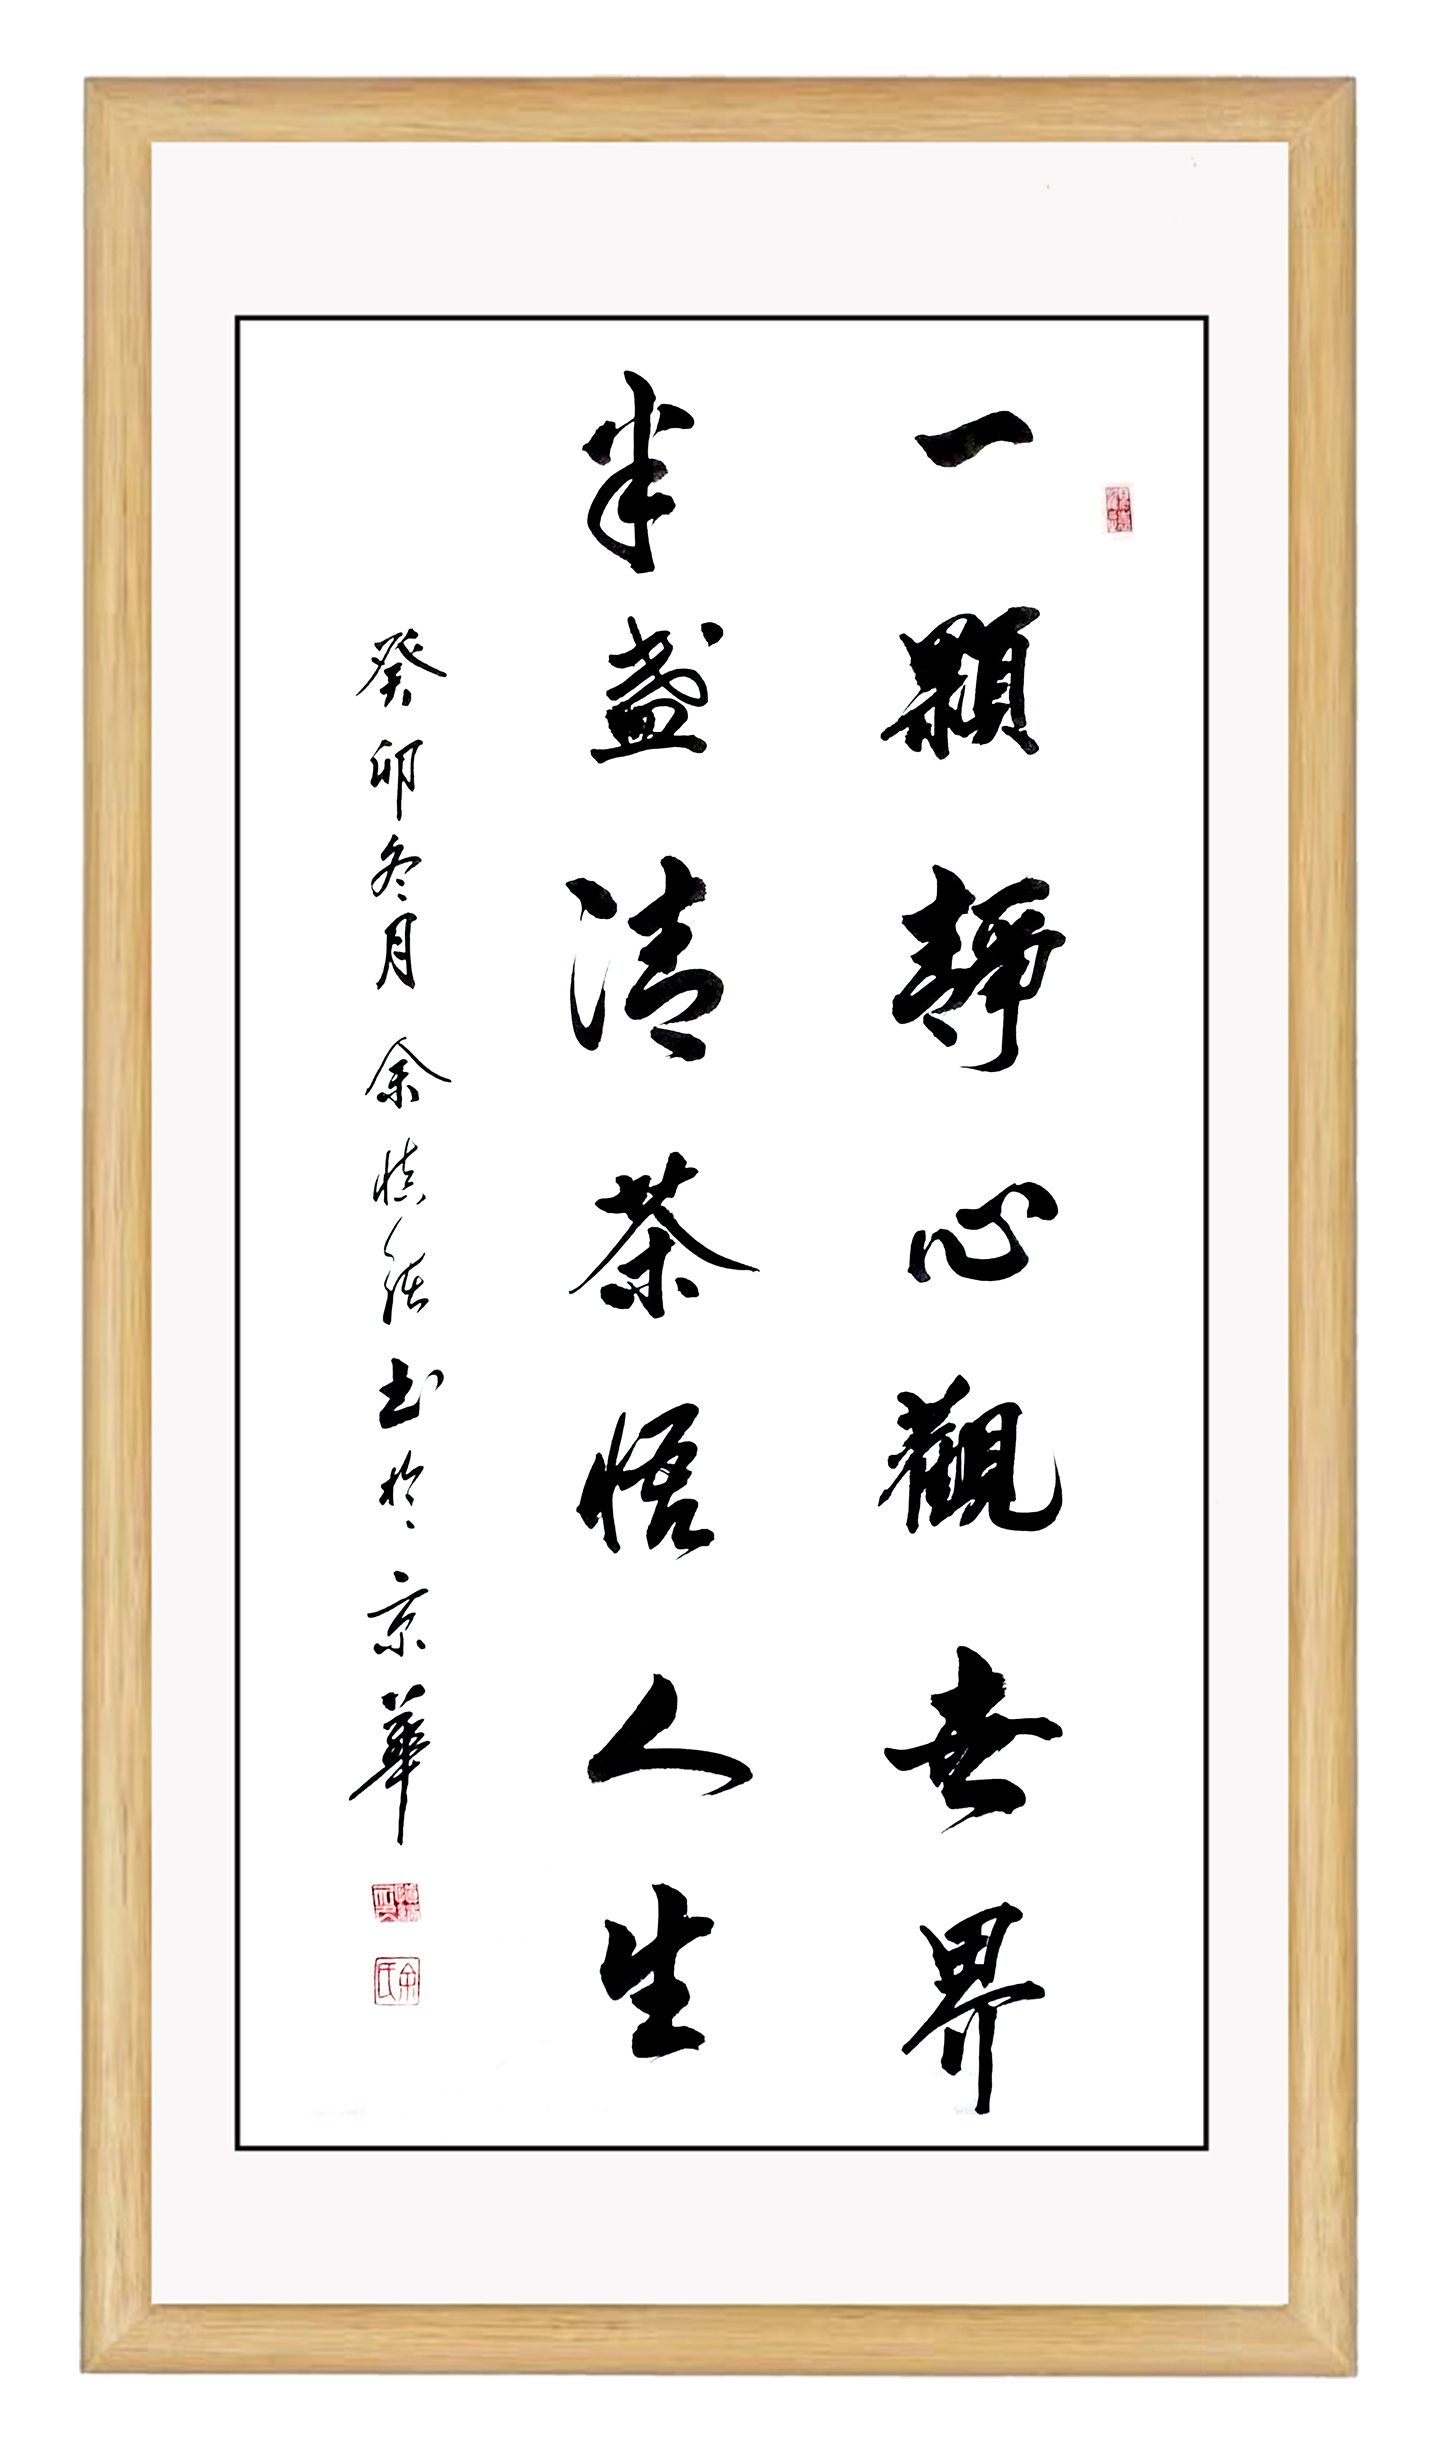 一顆靜心觀世界
半盞清茶悟人生
癸卯冬月 余慎书於京華
余氏